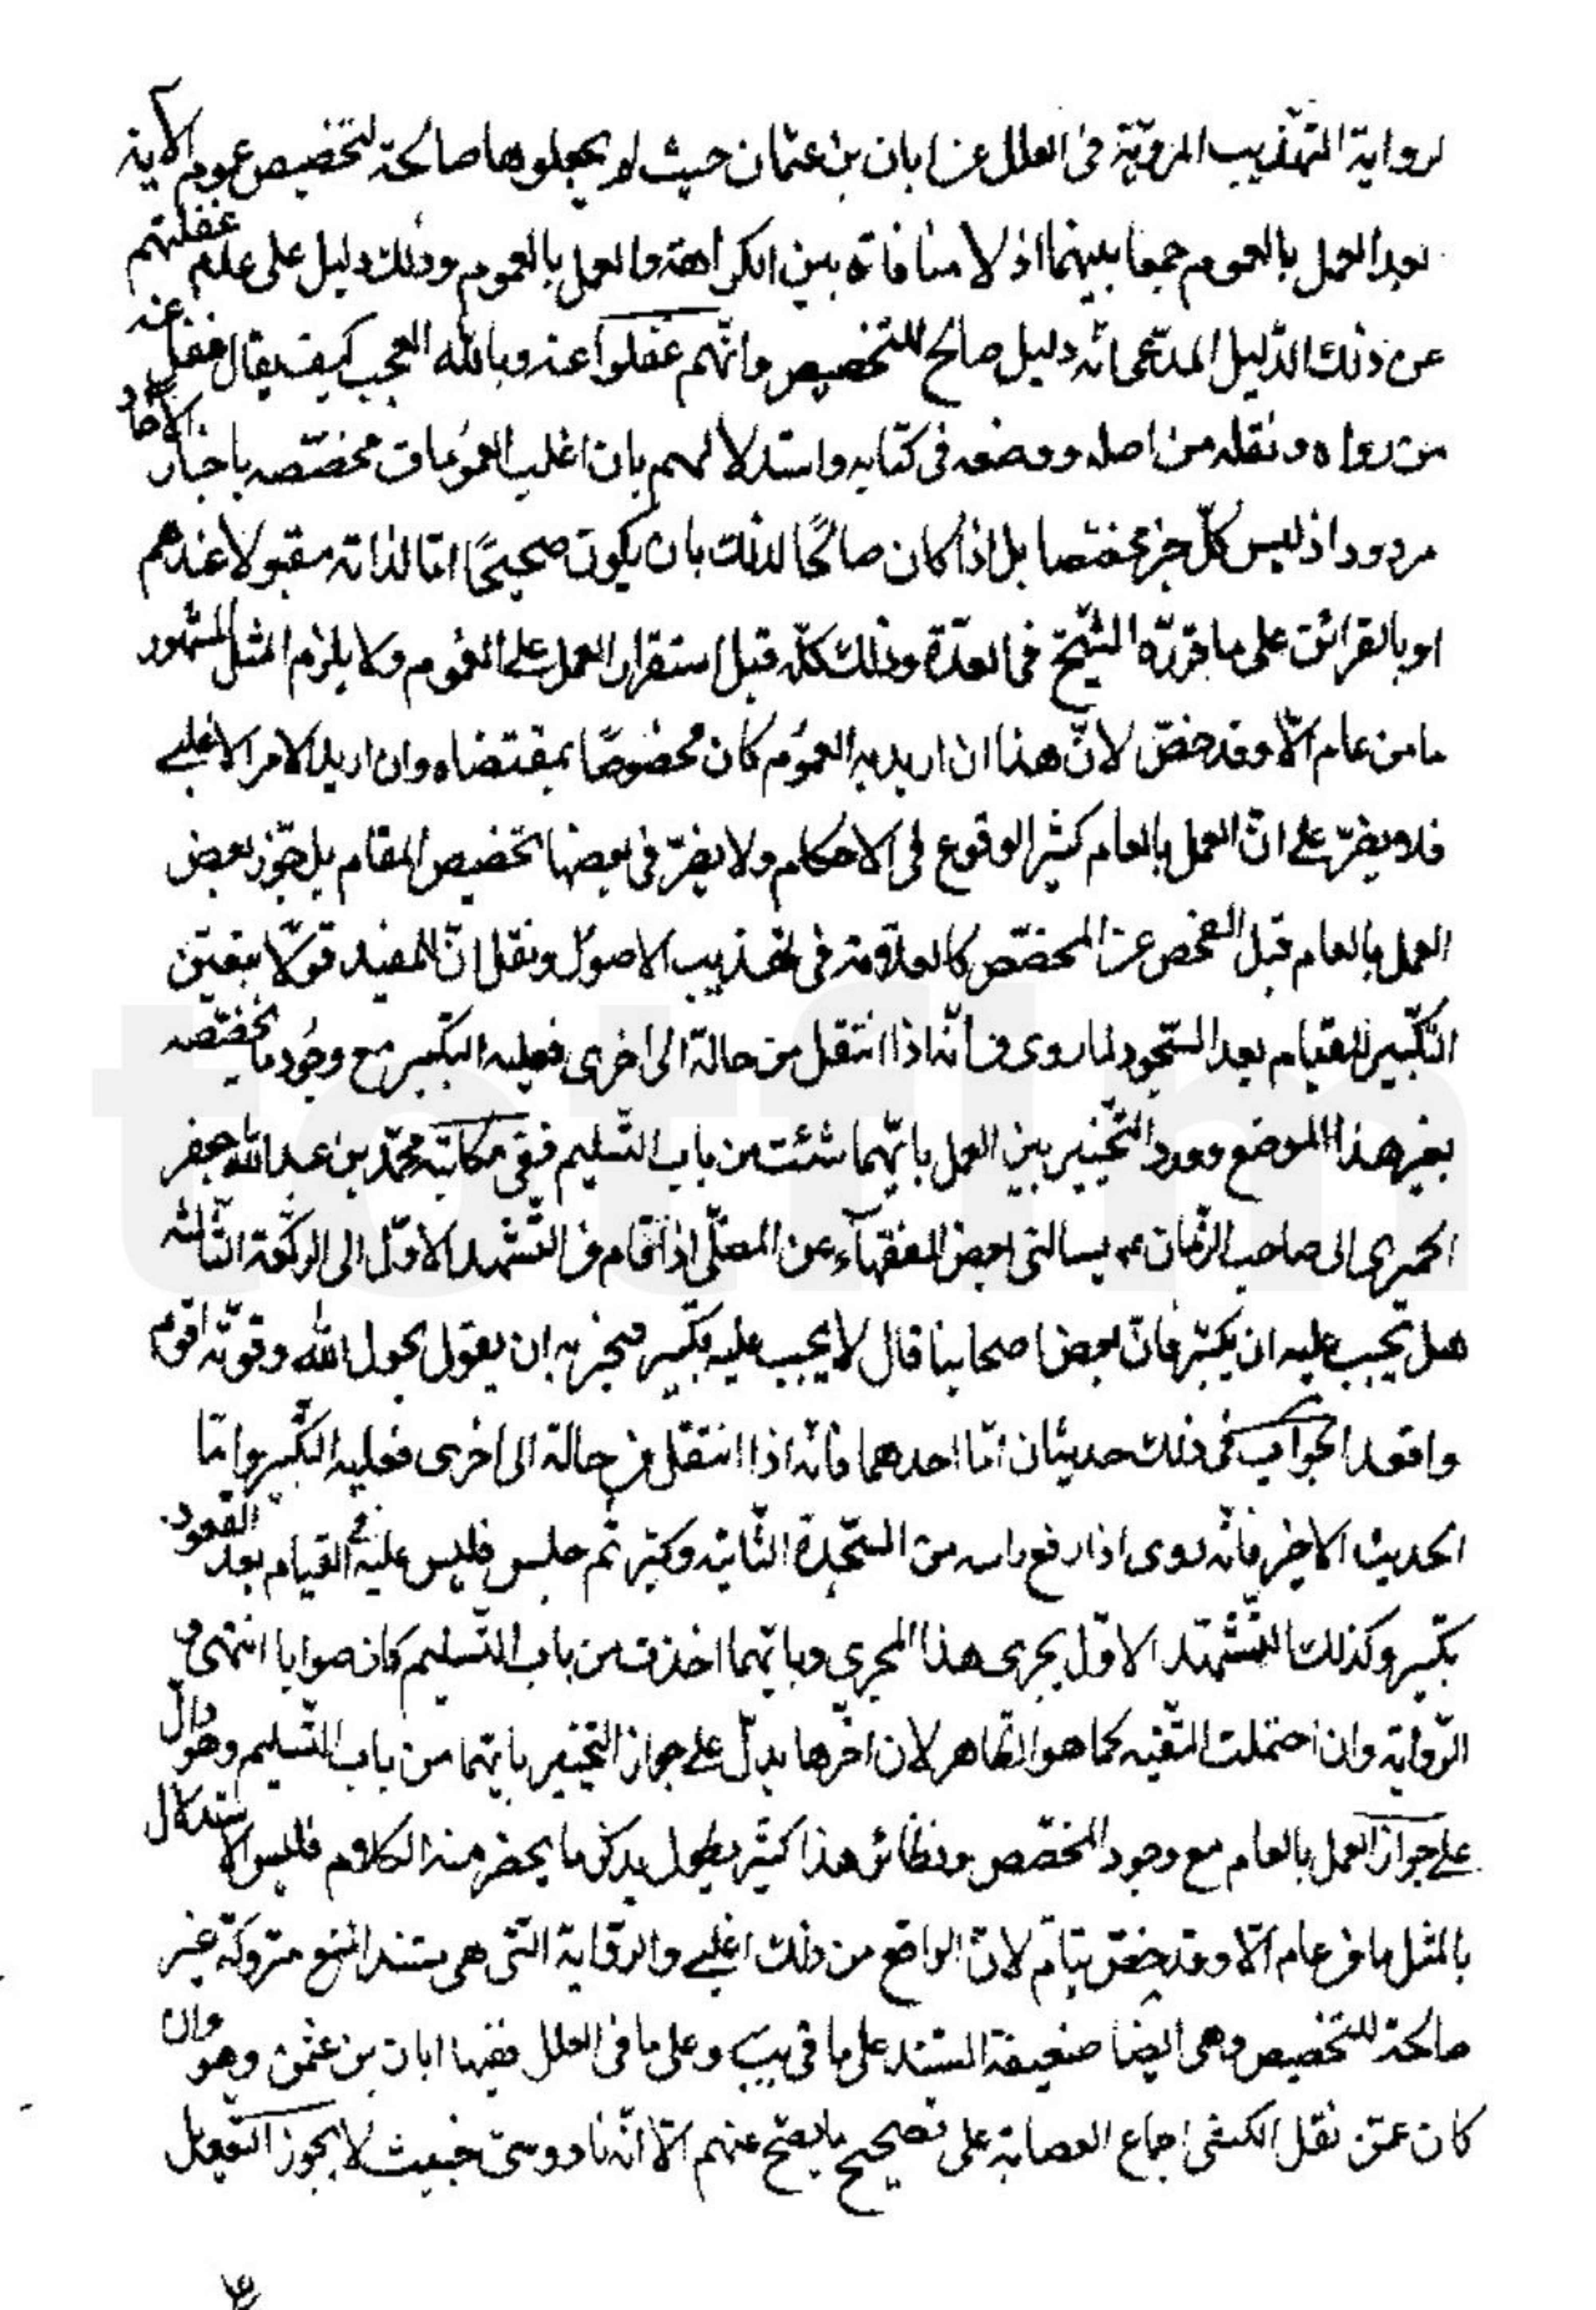 لرواية التهذيب المروية فى العلل عن ابان بن عثمان حيث لم يجعلوها صالحة لتخصيص عموم الاية
بعد العمل بالعموم جمعا بينهما اذ لا منافاة بين الكراهة والعمل بالعموم وذلك دليل على عدم غفلتهم
عن ذلك الدّليل المدّعى انّه دليل صالح للتخصيص وانّهم غفلوا عنه وبالله العجب كيف يقال غفل عنه
من رواه ونقله من اصله ووضعه فى كتابه واستدلالهم بان اغلب العمومات مخصّصه باخبار الاحاد
مردود اذ ليس كلّ خبر مخصصا بل اذا كان صالحًا لذلك بان يكون صحيحًا امّا لذاته مقبولا عندهم
او بالقرائن على ما قرّره الشّيخ فى العدّة وذلك كلّه قبل استقرار العمل على العموم ولا يلزم المثل المشهور
ما من عام الّا وقد خصّ لانّ هذا ان اريد به العموم كان مخصوصًا بمقتضاه وان اريد الامر الاغلبى
فلا يضرّ على انّ العمل بالعام كثير الوقوع فى الاحكام ولا يضرّ فى بعضها تخصيص المقام بل جوّز بعض
العمل بالعام قبل الفحص عن المخصّص كالعلامة فى تهذيب الاصول ونقل انّ للمفيد قولا
التّكبير للقيام بعد السّجود لما روى من انّه اذا انتقل من حالة الى اخرى فعليه التكبير مع وجود ما يخصّصه
بغير هذا الموضع وورد التّخيير بين العمل بايّهما شئت من باب التّسليم ففى مكاتبة محمّد بن عبد الله بن جعفر
الحميرى الى صاحب الزّمان عم يسالنى بعض الفقهآء عن المصلّى اذا قام من التّشهد الاوّل الى الرّكعة الثّالثه
هل يجب عليه ان يكبّر فانّ بعض اصحابنا قال لا يجب عليه تكبير فيجزيه ان يقول بحول الله وقوّته اقوم
واقعد الجواب فى ذلك حديثان امّا احدهما فانّه اذا انتقل من حالة الى اخرى فعليه التّكبير وامّا
الحديث الاخر فانّه روى اذا رفع راسه من السّجدة الثّانيه وكبّر ثم جلس فليس عليه فى القيام بعد القعود
تكبير وكذلك التّشهّد الاوّل يجرى هذا المجرى وبايّهما اخذت من باب التّسليم كان صوابا انتهى و
الرّواية وان احتملت التّقيه كما هو الظاهر لان اخرها يدلّ على جواز التخيير بايهما من باب التّسليم وهو دالّ
على جواز العمل بالعام مع وجود المخصّص ونظائر هذا كثير يطول بذكر ما يحضر منه الكلام فليس الاستدلال
بالمثل ما من عام الّا وقد خصّ بتامّ لانّ الواقع من ذلك اغلبى والرّواية التى هى مستند المنع متروكة غير
صالحة للتخصيص وهى ايضا ضعيفة السّند على ما فى يب وعلى ما فى العلل ففيها ابان بن عثمن وهو وان
كان عمّن نقل الكشى اجماع العصابة على تصحيح ما يصحّ عنهم الّا انّه ناووسىّ خبيث لا يجوز التعويل
totfim